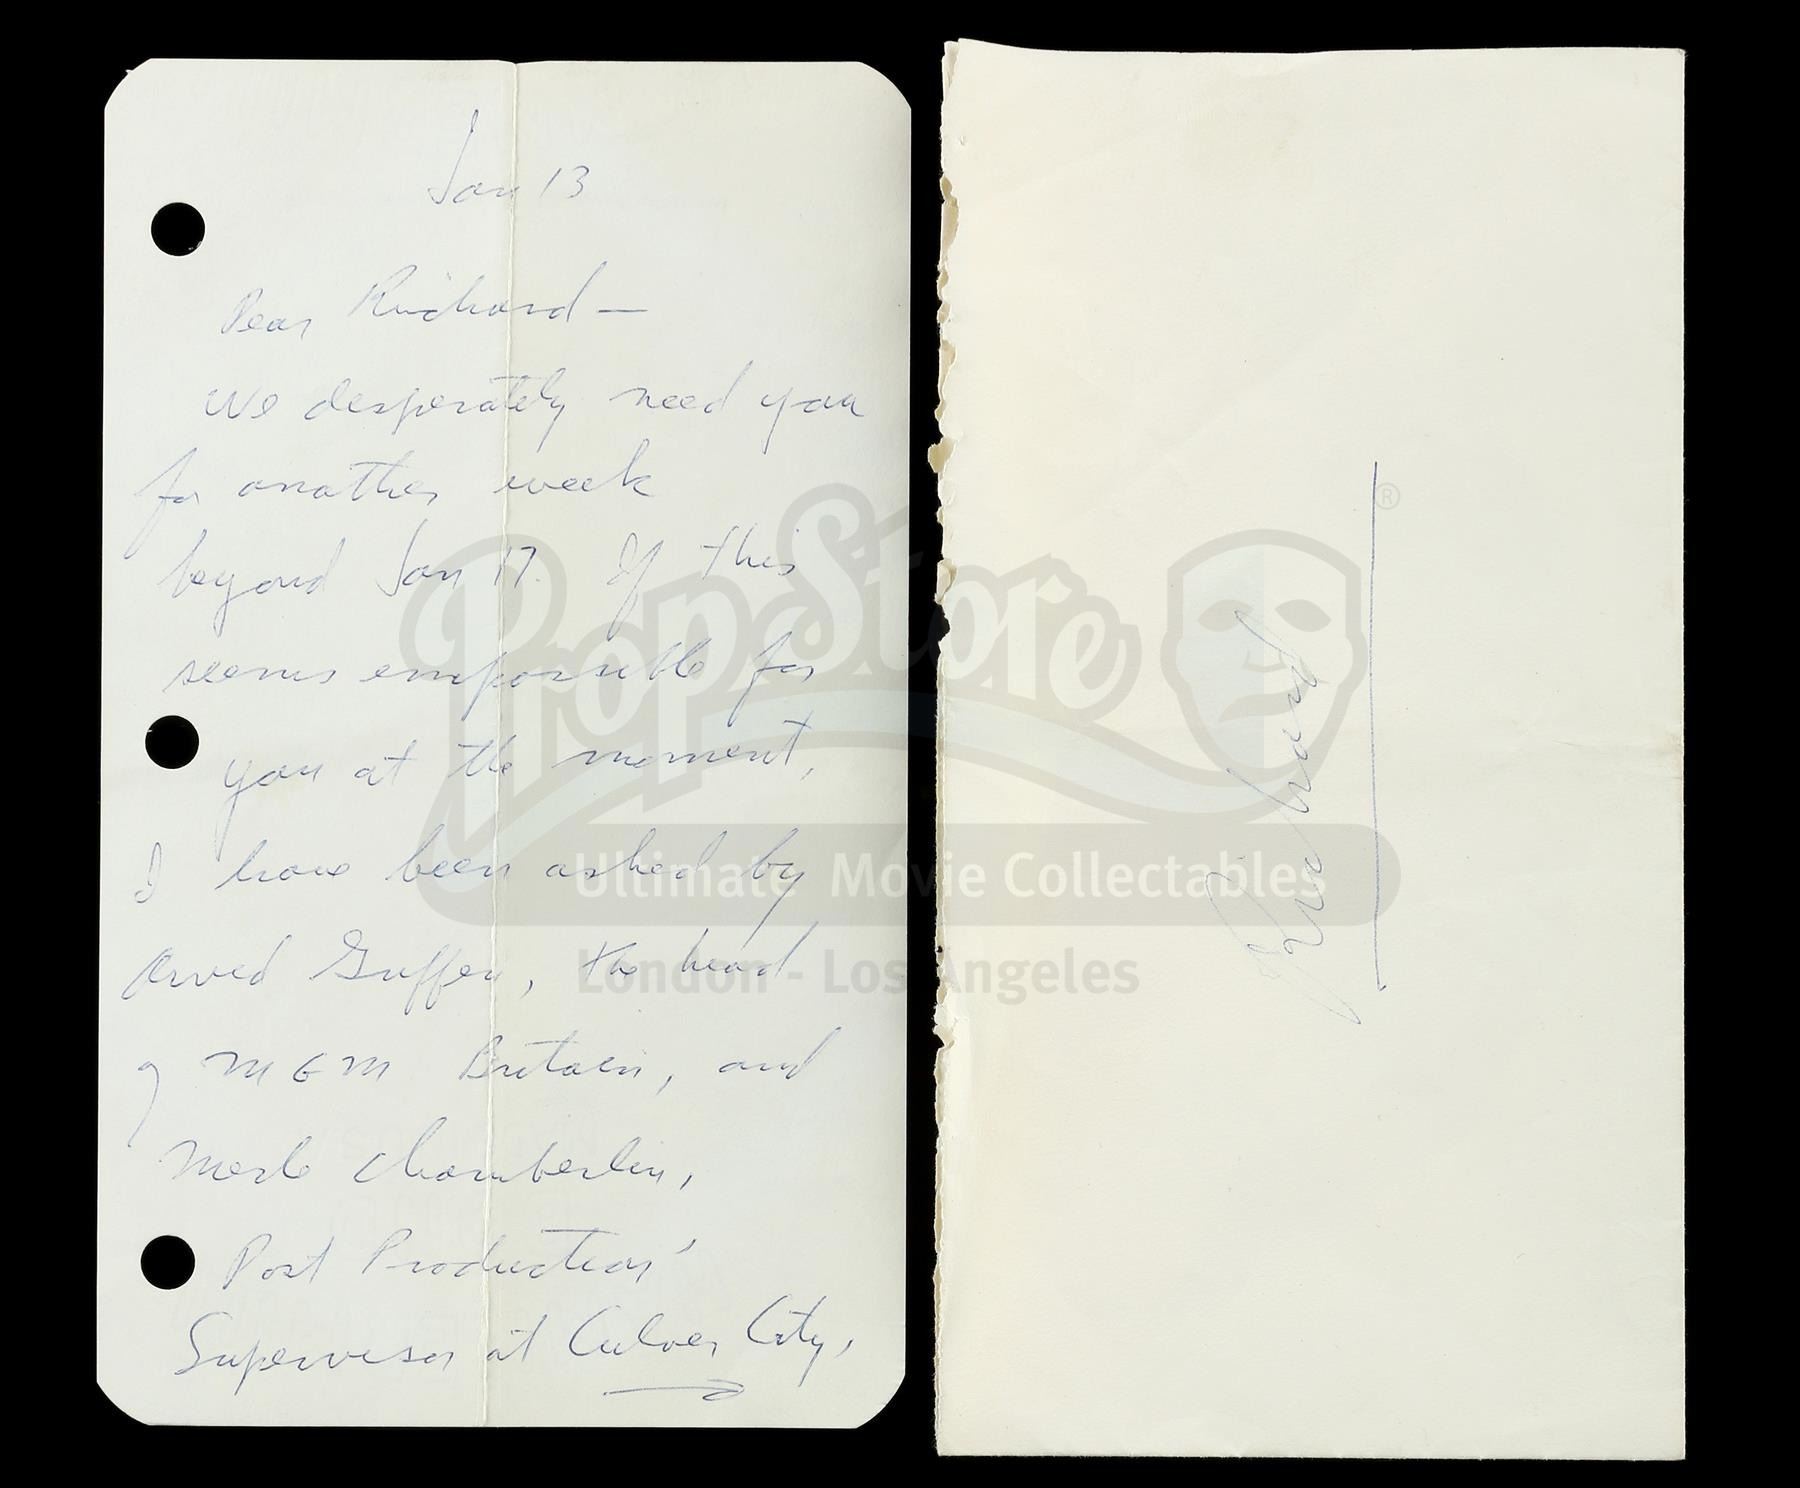 Jan 13
Dear Richard —
We desperately need you
for another week
beyond Jan 17. If this
seems impossible for
you at the moment,
I have been asked by
Arved Griffen, the head
of MGM Britain, and
Merle Chamberlin,
Post Production
Supervisor at Culver City,
Richard
PropStore
®
Ultimate Movie Collectables
London - Los Angeles